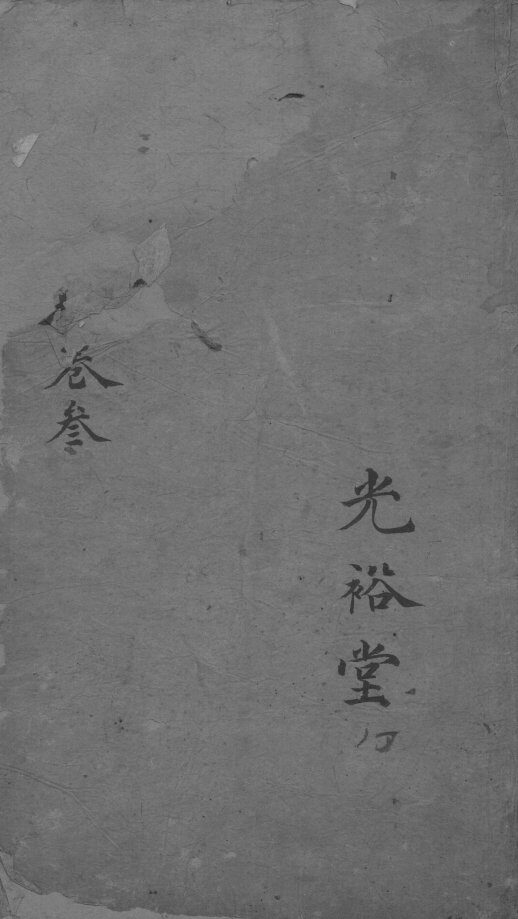 光裕堂
卷叄